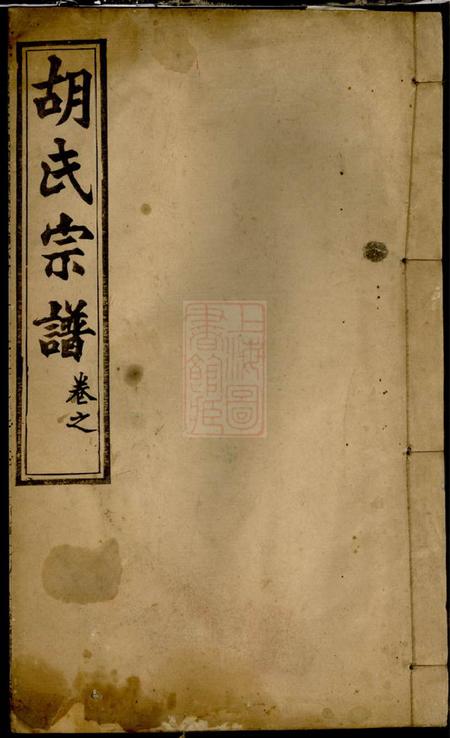 胡氏宗譜
卷之
上海圖
書館藏